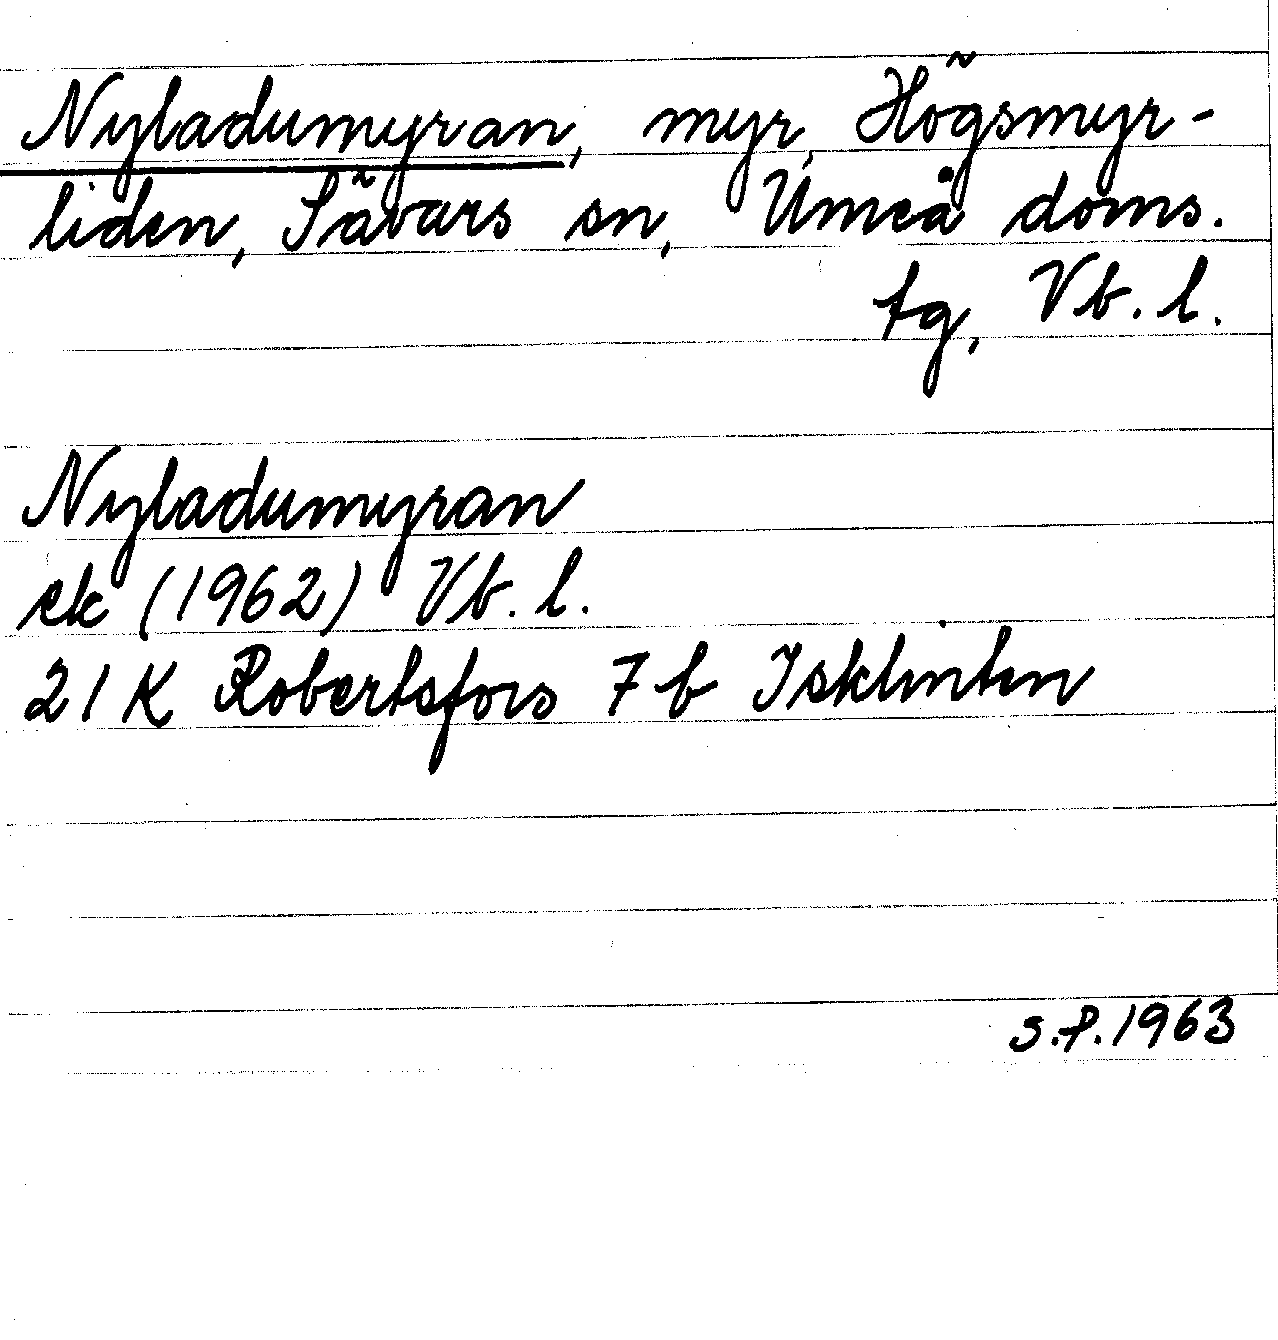 Nyladumyran, myr, Högsmyr-
liden, Sävars sn, Umeå doms.
tg, Vb. l.
Nyladumyran
ek (1962) Vb. l.
21 K Robertsfors 7 b Isklinten
S.P. 1963